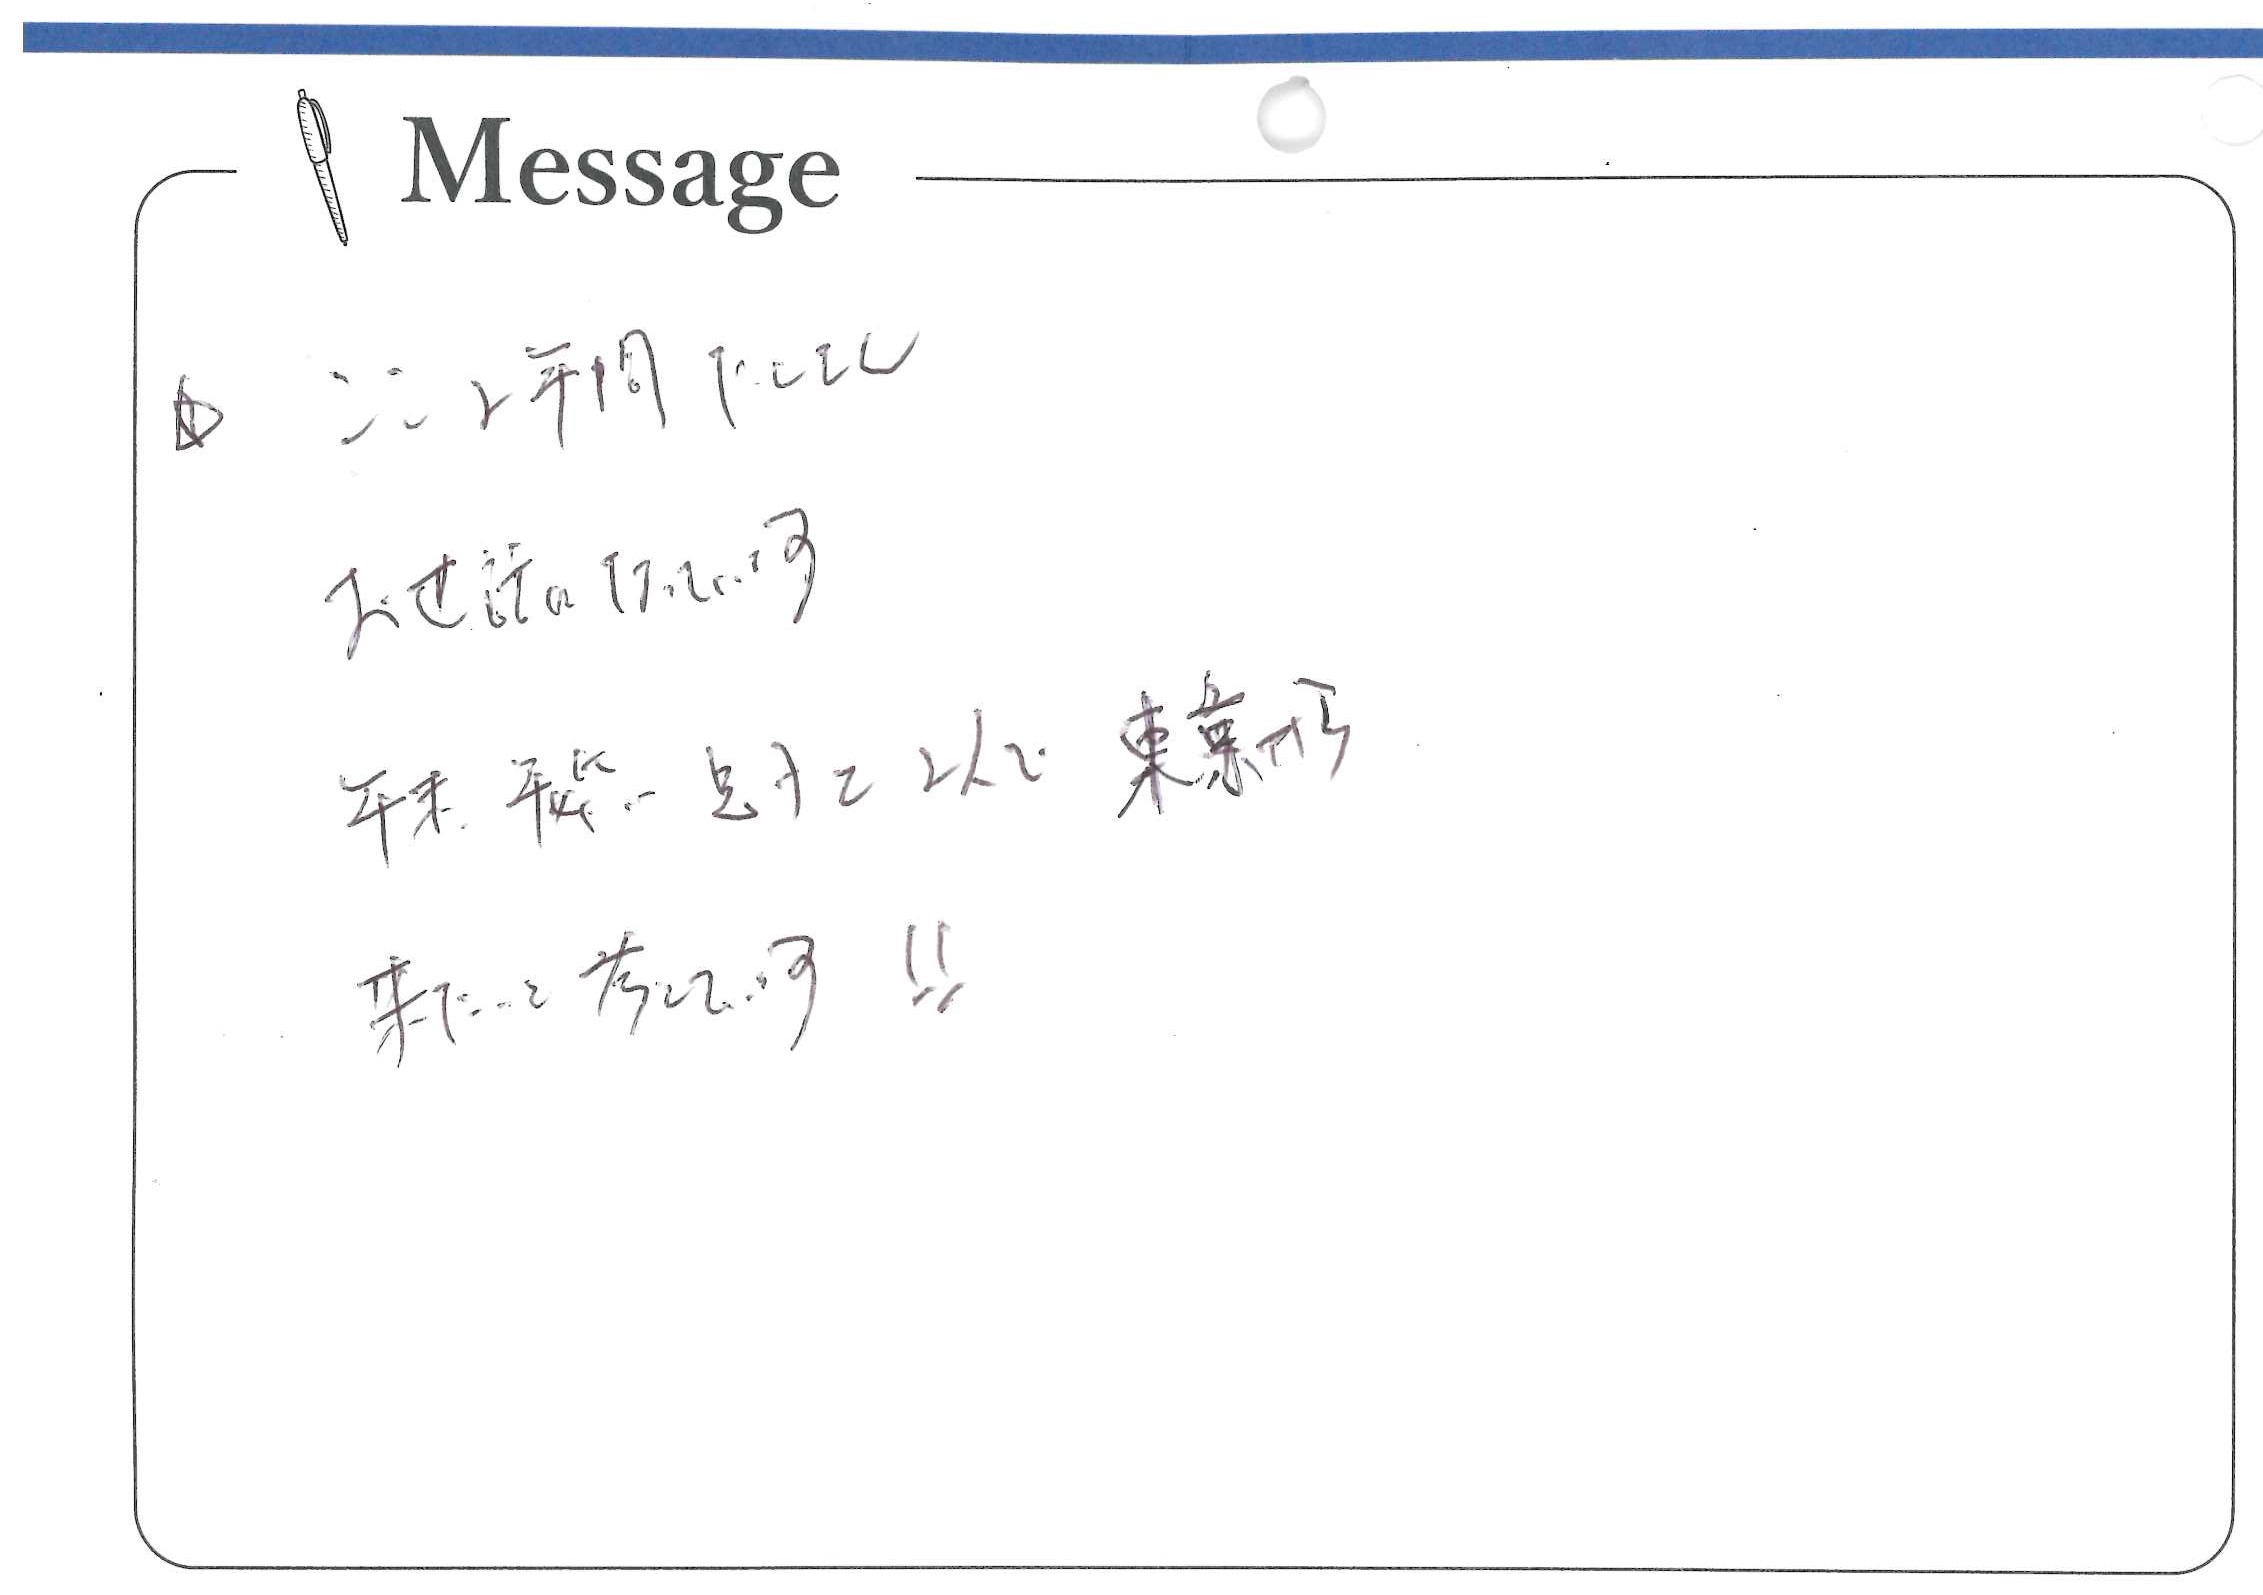 Message
ここ2年間 たてこし
お世話になっています
年末、年始に 息子と 2人で 東京から
来たいと考えています !!